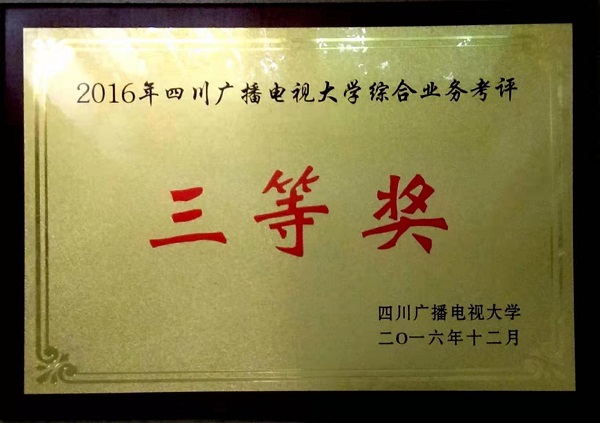 2016年四川广播电视大学综合业务考评
三等奖
四川广播电视大学
二〇一六年十二月